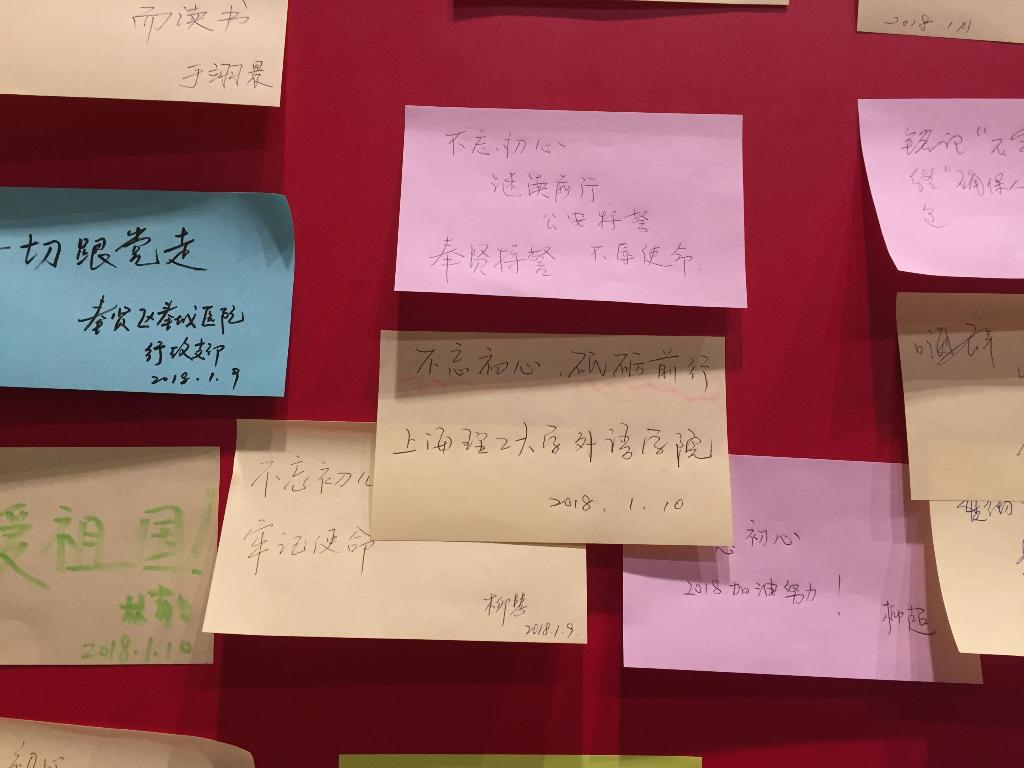 而读书
于翊景
2018.1.
不忘初心
继续前行
公安特警
奉贤特警 不辱使命
铭记"不忘
"确保人
一切跟党走
奉贤区奉城医院
行政支部
2018.1.9
不忘初心,砥砺前行
上海理工大学外语学院
2018.1.10
爱祖国!
2018.1.10
不忘初心
牢记使命
柳慧
2018.1.9
初心
2018加油努力!
柳超